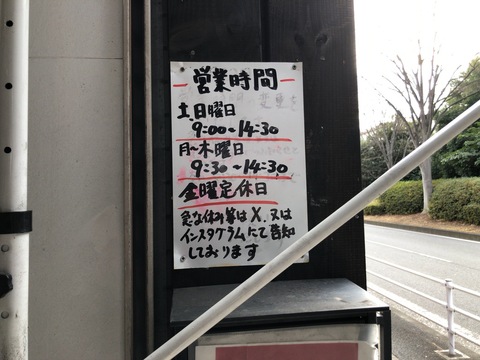 営業時間
土日曜日
9:00~14:30
月~木曜日
9:30~14:30
金曜定休日
急な休み等はX、又は
インスタグラムにて告知
しております